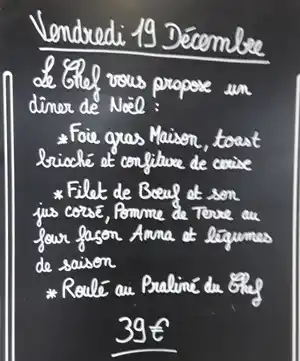 Vendredi 19 Décembre
Le Chef vous propose un
dîner de Noël :
* Foie gras Maison, toast
brioché et confiture de cerise
* Filet de Bœuf et son
jus corsé, Pomme de Terre au
four façon Anna et légumes
de saison
* Roulé au Praliné du Chef
39€